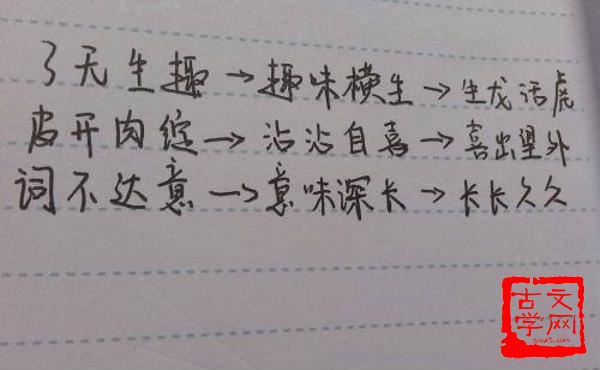 了无生趣→趣味横生→生龙活虎
皮开肉绽→沾沾自喜→喜出望外
词不达意→意味深长→长长久久
古文学网